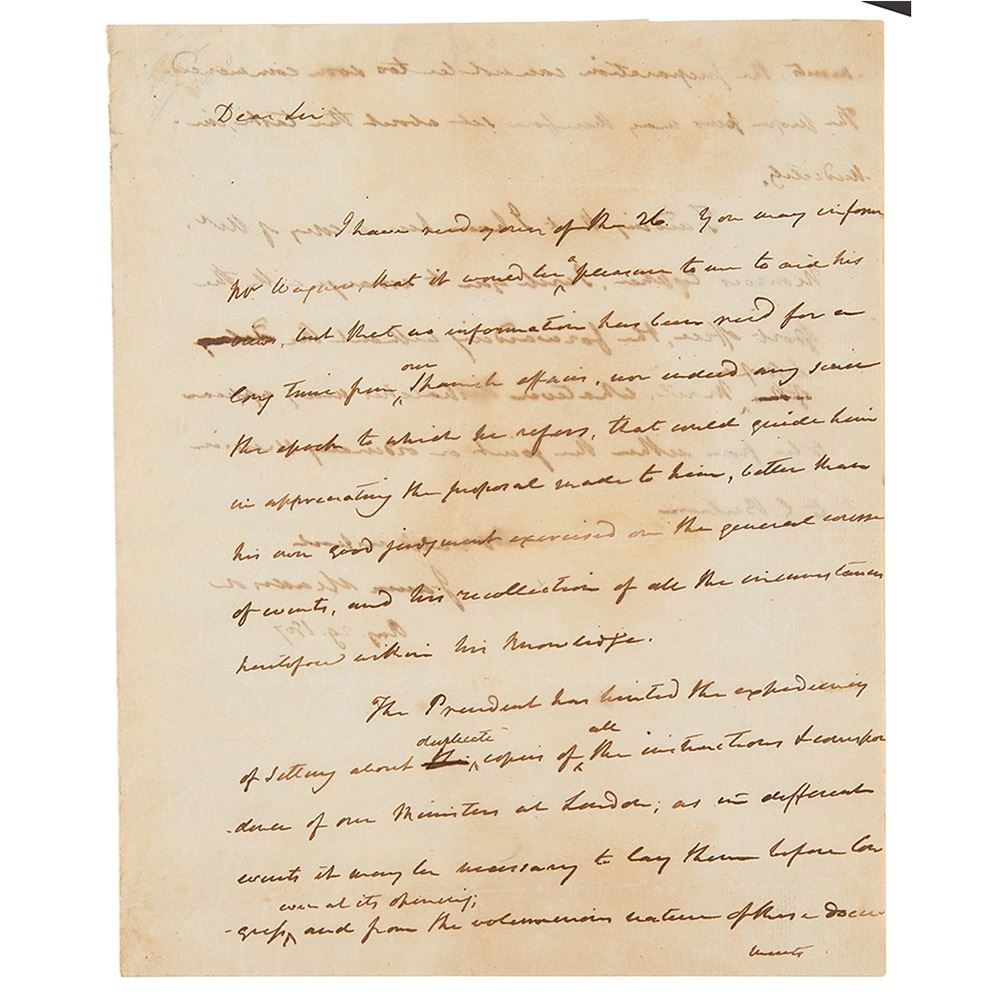 Dear Sir
I have recd yours of the 26. You may inform
Mr Wagner, that it would be a pleasure to me to aid his
, but that no information has been recd for a
long time from our Spanish affairs, nor indeed any since
the epoch to which he refers, that could guide him
in appreciating the proposal made to him, better than
his own good judgment exercised on the general course
of events, and his recollection of all the circumstances
heretofore within his knowledge.
The President has hinted the expediency
of setting about duplicate copies of all the instructions & correspon
-dence of our Ministers at London; as in different
events it may be necessary to lay them before Con
-gress even at its opening; and from the voluminous nature of these docu-
ments